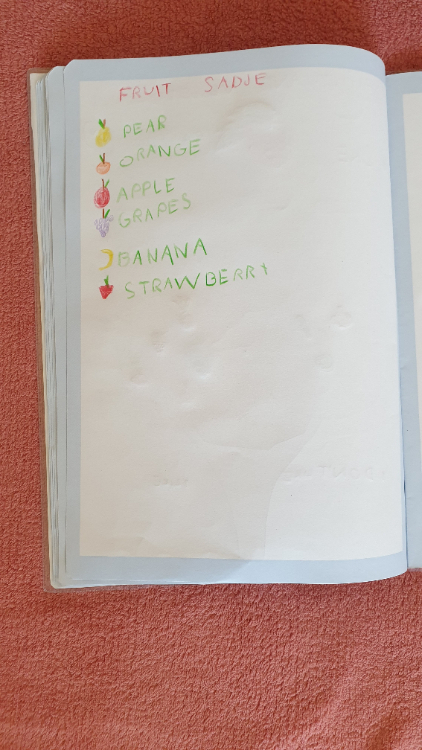 FRUIT SADJE
PEAR
ORANGE
APPLE
GRAPES
BANANA
STRAWBERRY